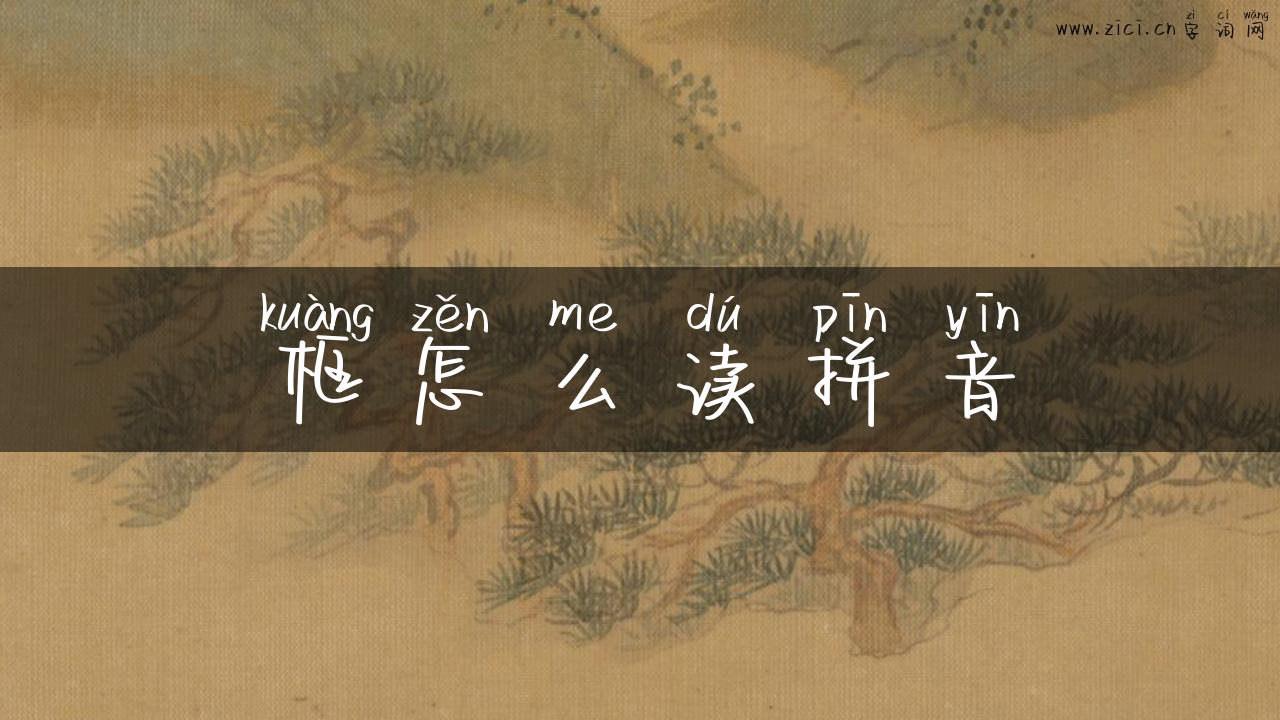 zì cí wǎng
www.zici.cn 字词网
kuàng zěn me dú pīn yīn
框怎么读拼音